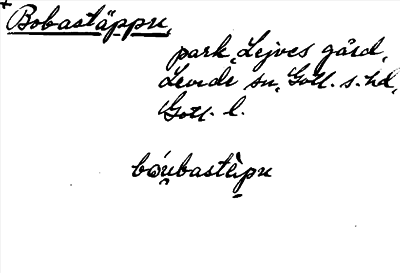 +
Bobastäppu,
park, Lejves gård,
Levide sn, Gotl. s. hd,
Gotl. l.
bǫ́u̯bastè̱pu